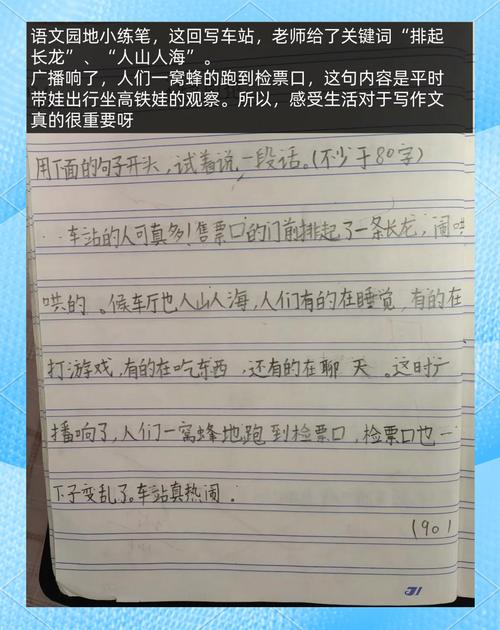 语文园地小练笔，这回写车站，老师给了关键词“排起
长龙”、“人山人海”。
广播响了，人们一窝蜂的跑到检票口，这句内容是平时
带娃出行坐高铁娃的观察。所以，感受生活对于写作文
真的很重要呀
用下面的句子开头，试着说一段话。(不少于80字)
车站的人可真多！售票口的门前排起了一条长龙，闹哄
哄的。候车厅也人山人海，人们有的在睡觉，有的在
打游戏，有的在吃东西，还有的在聊天。这时广
播响了，人们一窝蜂地跑到检票口，检票口也一
下子变乱了。车站真热闹。
(90)